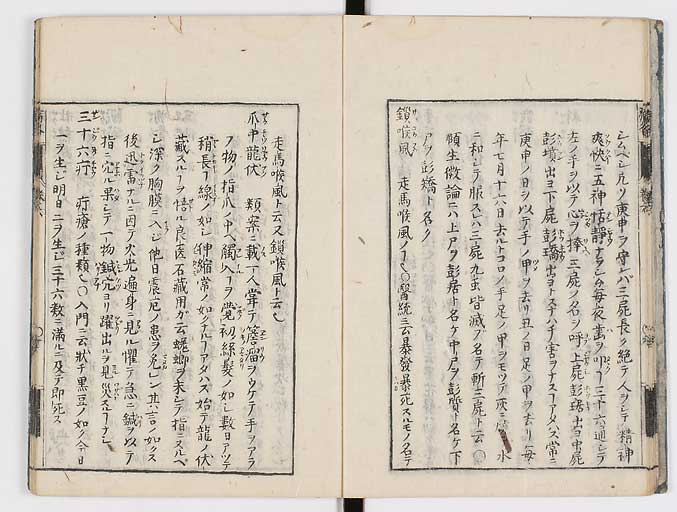 シムベシ凡ソ庚申ヲ守レバ三尸長ク絶テ人ヲシテ精神
爽快ニ五神恬静ナラシム毎夜歯ヲ叩クコ三十六通シテ
左ノ手ヲ以テ心ヲ捧ヘ三尸ノ名ヲ呼上尸彭琚出ヨ中尸
彭瓆出ヨ下尸彭矯出ヨトスナハチ害ヲナスコアタハズ常ニ
庚申ノ日ヲ以テ手ノ甲ヲ去リ丑ノ日足ノ甲ヲ去リ毎
年七月十六日去ルトコロノ手足ノ甲ヲモツテ灰ニ焼 水
ニ和シテ服スレハ三尸九虫皆滅ブ名テ斬三尸ト云○
傾生微論ニハ上尸ヲ彭琚ト名ケ中尸ヲ彭質ト名ケ下
尸ヲ彭矯ト名ク
鎖喉風 走馬喉風ノコ○醫統ニ云暴發暴死スルモノ名テ
走馬喉風ト云又鎖喉風ト云
爪中龍伏 類案ニ載一人嘗テ簷溜ヲウケテ手ヲアラ
フ物ノ指爪ノ中ヘ觸入コヲ覺初線髮ノ如シ數日アツテ
稍長コ線ノ如シ伸縮常ノ如クナルコアタハズ始テ龍ノ伏
藏スルコヲ悟ル良医石藏用ガ云蜣螂ヲ末シテ指ニヌルベ
シ深ク胸膜ニ入ジ他日震厄ノ患ヲ免レン其言ノ如クス
後迅雷ナルニ因テ火光遍身ニ見ル懼テ急ニ鍼ヲ以テ
指ニ爪ル果シテ一物鍼穴ヨリ躍出ルヲ見災ヲナサズ
三十六疔 疔瘡ノ種類○入門ニ云狀チ黒豆ノ如ク今日
一ヲ生ジ明日二ヲ生ジ三十六数ニ滿ルニ及テ即死ス